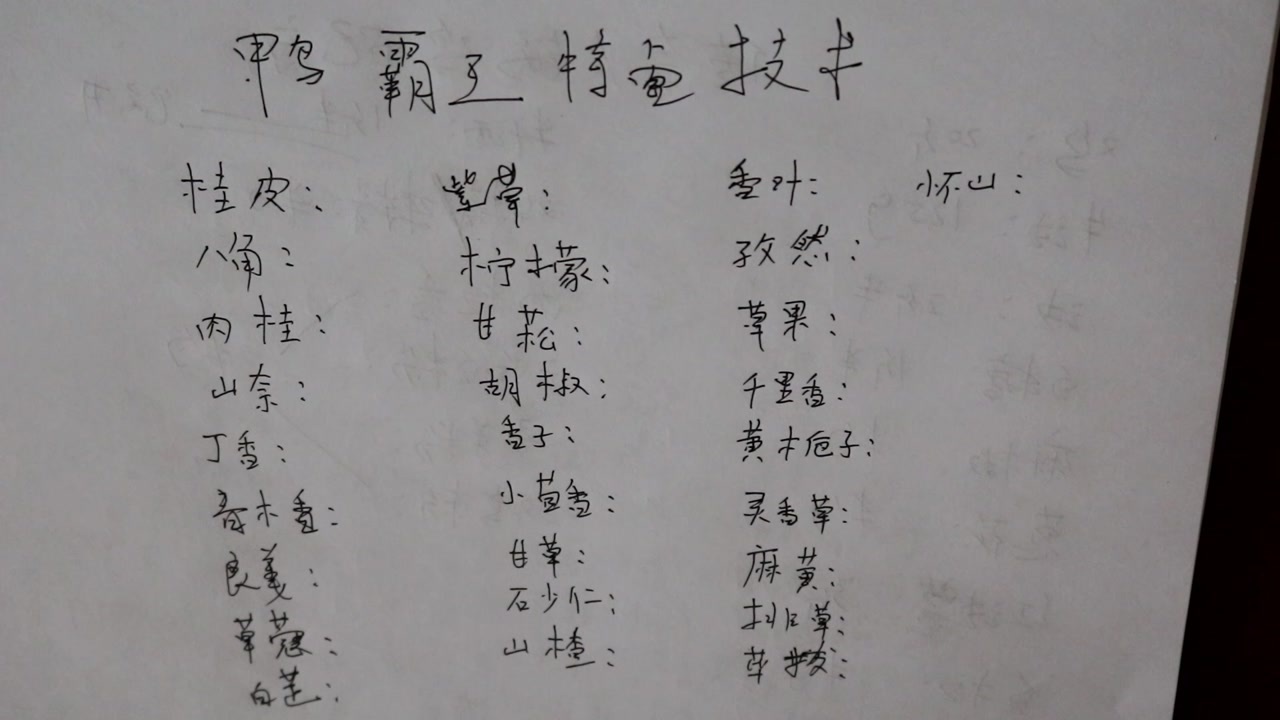 鸭霸王特色技术
桂皮: 紫草: 香叶: 怀山:
八角: 柠檬: 孜然:
肉桂: 甘菘: 草果:
山奈: 胡椒: 千里香:
丁香: 香子: 黄栀子:
木香: 小茴香: 灵香草:
良姜: 甘草: 麻黄:
草蔻: 石少仁: 排草:
白芷: 山楂: 草拨: